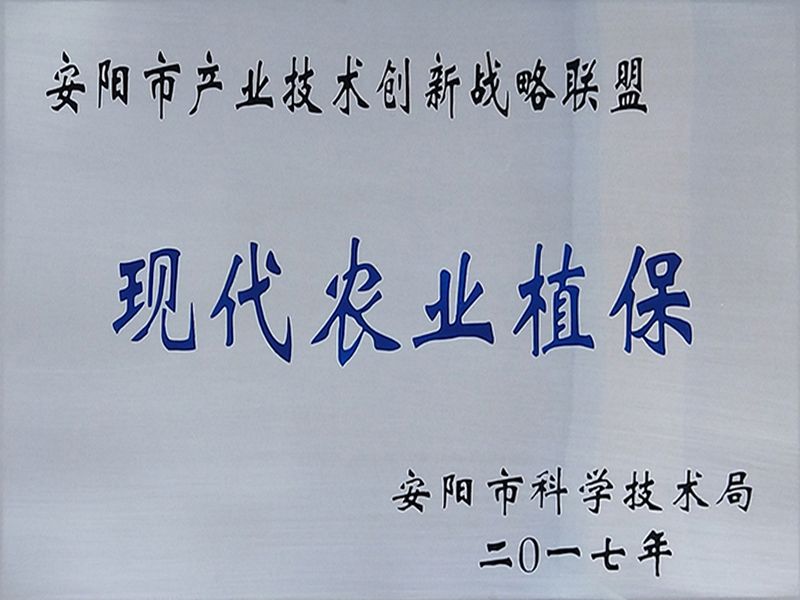 安阳市产业技术创新战略联盟
现代农业植保
安阳市科学技术局
二〇一七年